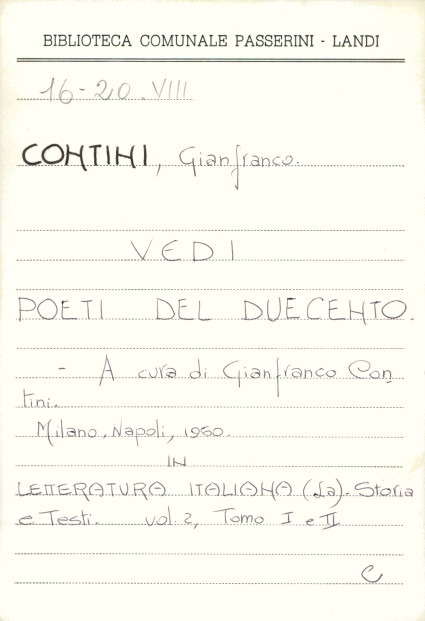 BIBLIOTECA COMUNALE PASSERINI - LANDI
16-20.VIII
CONTINI, Gianfranco.
VEDI
POETI DEL DUECENTO.
- A cura di Gianfranco Con
tini.
Milano, Napoli, 1960.
IN
LETTERATURA ITALIANA (La). Storia
e Testi. vol. 2, Tomo I e II
C